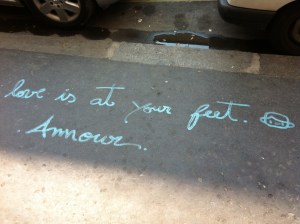 love is at your feet.
Amour.